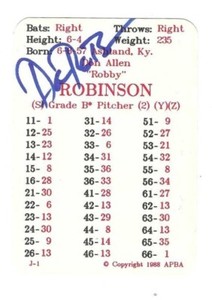 Bats: Right Throws: Right
Height: 6-4 Weight: 235
Born: 6-8-57 Ashland, Ky.
Don Allen
"Robby"
ROBINSON
(S) Grade B* Pitcher (2) (Y)(Z)
11- 1 31-14 51- 9
12-25 32-26 52-27
13-14 33- 1 53-15
14-30 34-31 54-29
15-10 35-14 55- 8
16-28 36-33 56-30
21-24 41-24 61-24
22-13 42-13 62-12
23-31 43-29 63-31
24-14 44- 8 64-32
25-13 45-14 65-39
26-13 46-13 66- 1
J-1 © Copyright 1988 APBA